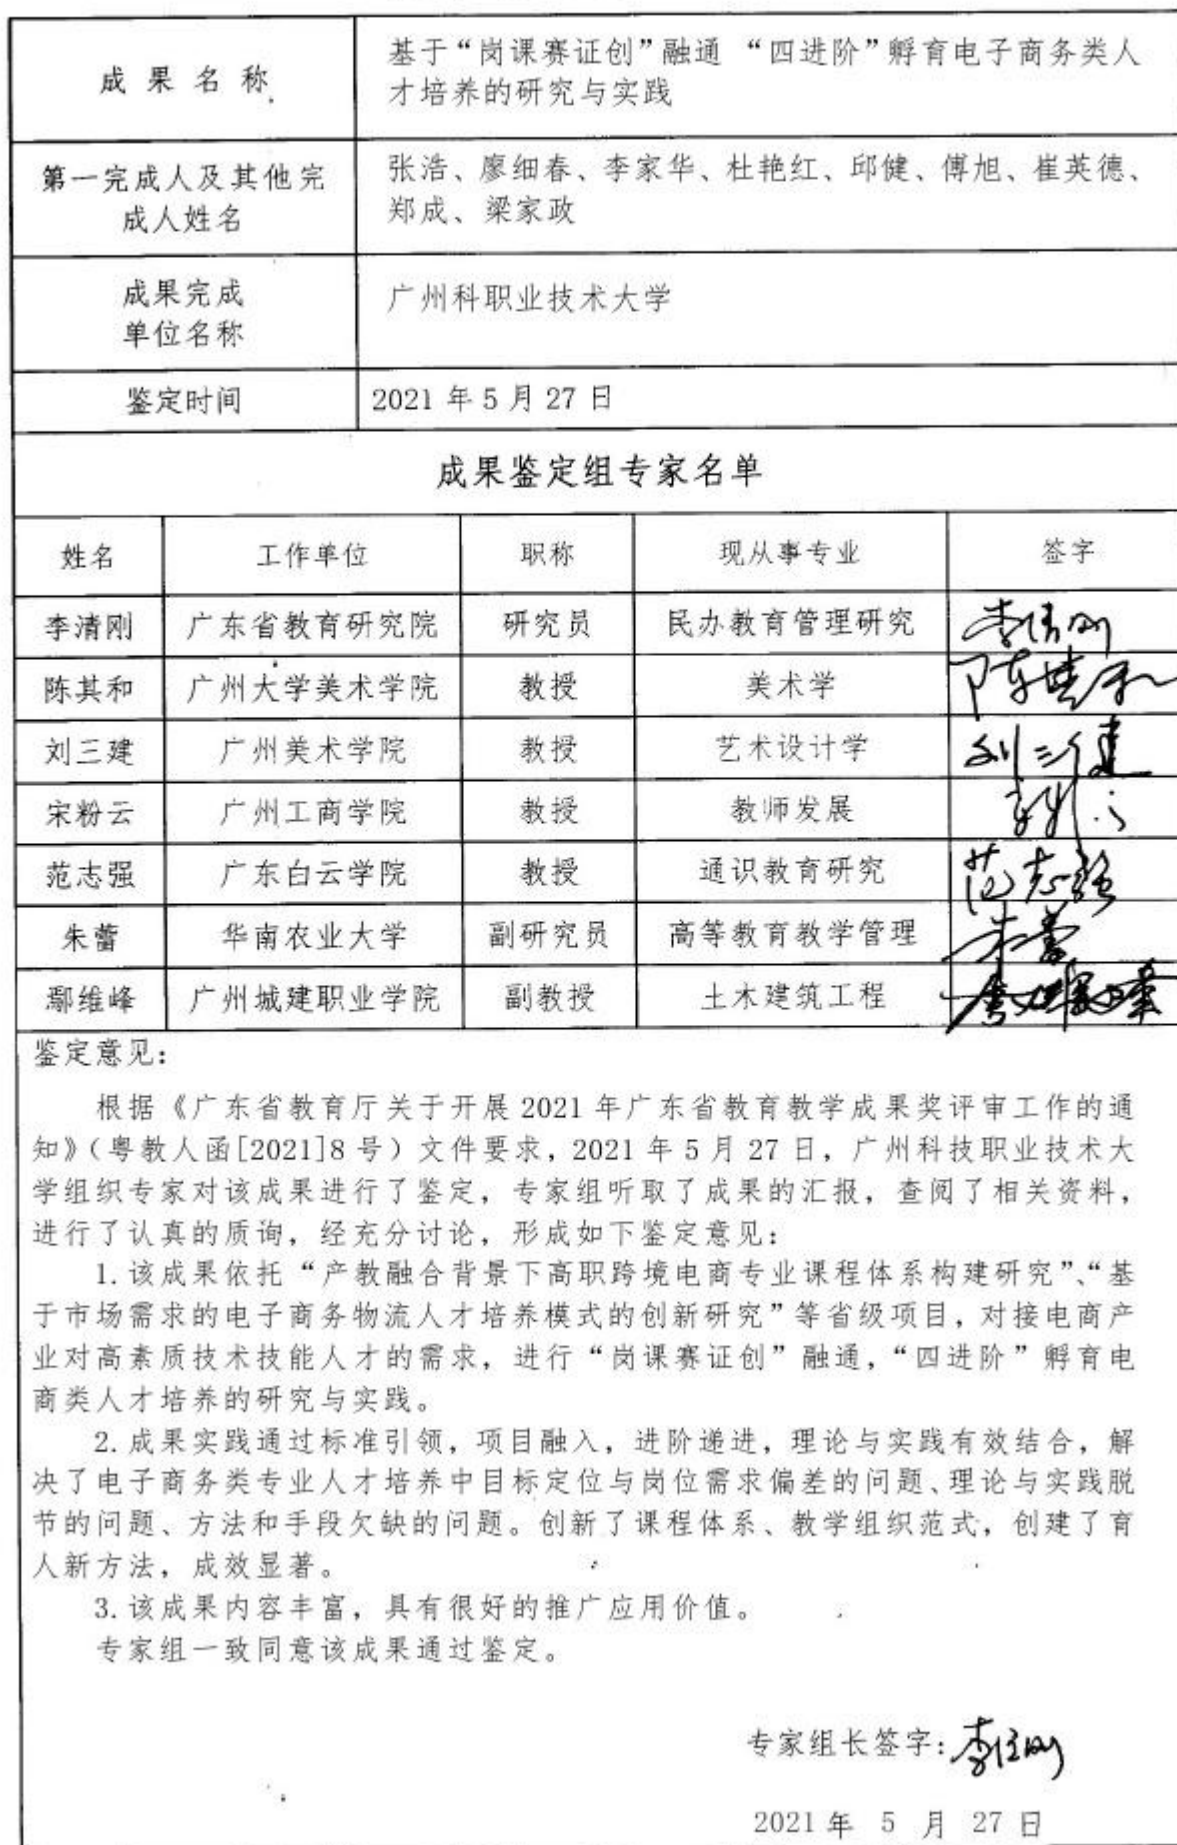 成果名称
基于“岗课赛证创”融通 “四进阶”孵育电子商务类人
才培养的研究与实践
第一完成人及其他完
成人姓名
张浩、廖细春、李家华、杜艳红、邱健、傅旭、崔英德、
郑成、梁家政
成果完成
单位名称
广州科职业技术大学
鉴定时间
2021 年 5 月 27 日
成果鉴定组专家名单
姓名 工作单位 职称 现从事专业 签字
李清刚 广东省教育研究院 研究员 民办教育管理研究 李清刚
陈其和 广州大学美术学院 教授 美术学 陈其和
刘三建 广州美术学院 教授 艺术设计学 刘三建
宋粉云 广州工商学院 教授 教师发展
范志强 广东白云学院 教授 通识教育研究 范志强
朱蕾 华南农业大学 副研究员 高等教育教学管理 朱蕾
鄢维峰 广州城建职业学院 副教授 土木建筑工程
鉴定意见：
根据《广东省教育厅关于开展 2021 年广东省教育教学成果奖评审工作的通
知》（粤教人函[2021]8 号）文件要求，2021 年 5 月 27 日，广州科技职业技术大
学组织专家对该成果进行了鉴定，专家组听取了成果的汇报，查阅了相关资料，
进行了认真的质询，经充分讨论，形成如下鉴定意见：
1.该成果依托“产教融合背景下高职跨境电商专业课程体系构建研究”、“基
于市场需求的电子商务物流人才培养模式的创新研究”等省级项目，对接电商产
业对高素质技术技能人才的需求，进行“岗课赛证创”融通，“四进阶”孵育电
商类人才培养的研究与实践。
2.成果实践通过标准引领，项目融入，进阶递进，理论与实践有效结合，解
决了电子商务类专业人才培养中目标定位与岗位需求偏差的问题、理论与实践脱
节的问题、方法和手段欠缺的问题。创新了课程体系、教学组织范式，创建了育
人新方法，成效显著。
3.该成果内容丰富，具有很好的推广应用价值。
专家组一致同意该成果通过鉴定。
专家组长签字：李清刚
2021 年 5 月 27 日